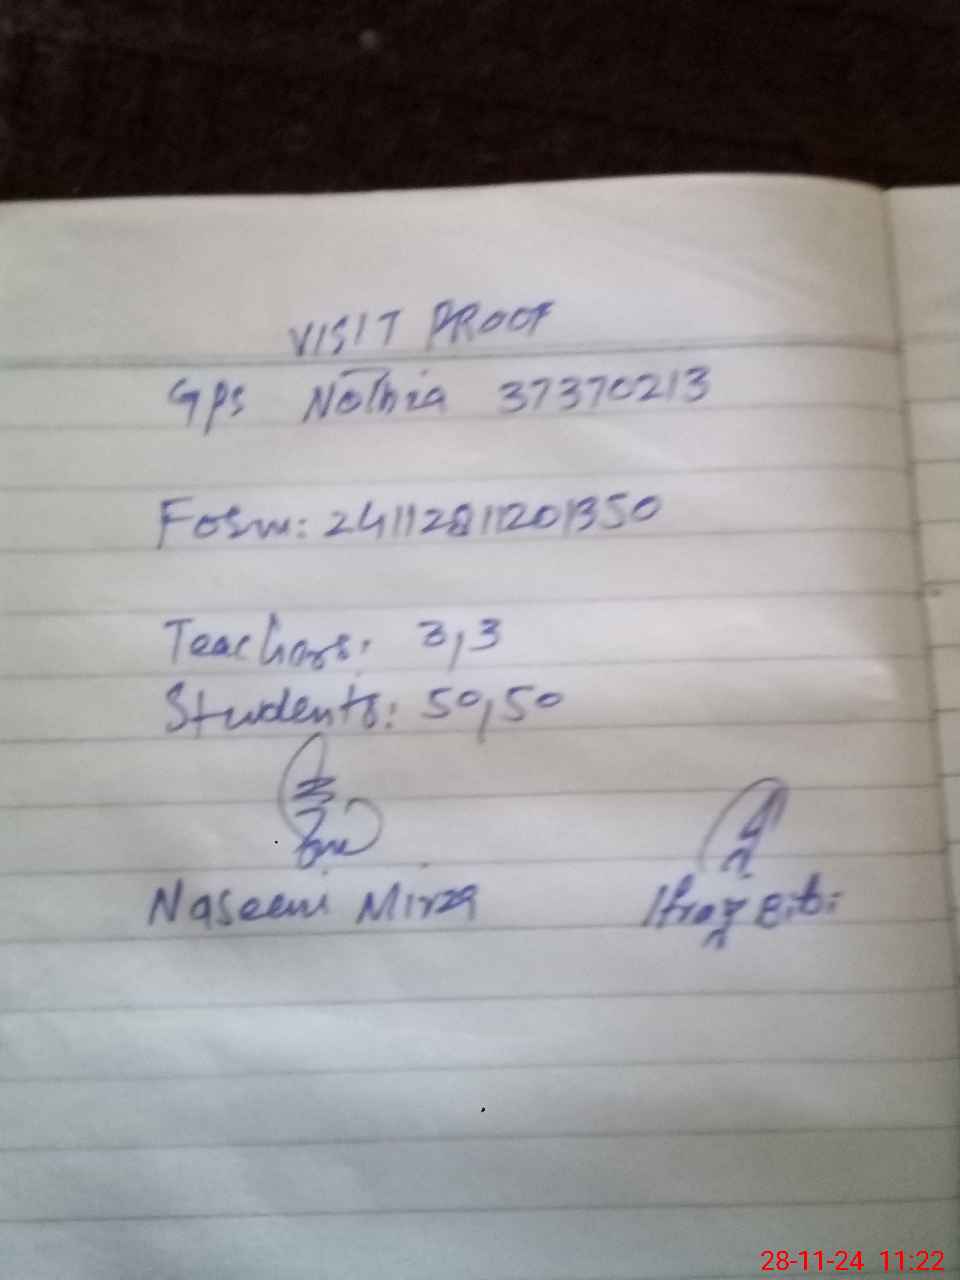 VISIT PROOF
GPS Nothia 37370213
Form: 24112811201350
Teachers: 3,3
Students: 50,50
Naseem Mirza
Bibi
28-11-24 11:22